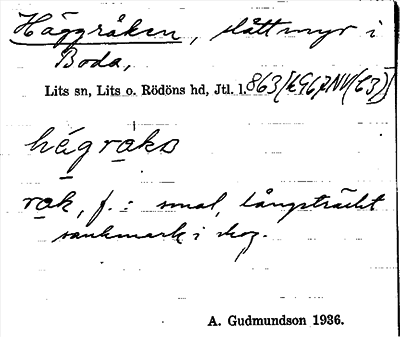 Häggråken, slåttmyr i
Boda,
Lits sn, Lits o. Rödöns hd, Jtl. l.
hägråks
råk, f.: smal, långsträckt
sankmark i skog.
A. Gudmundson 1936.